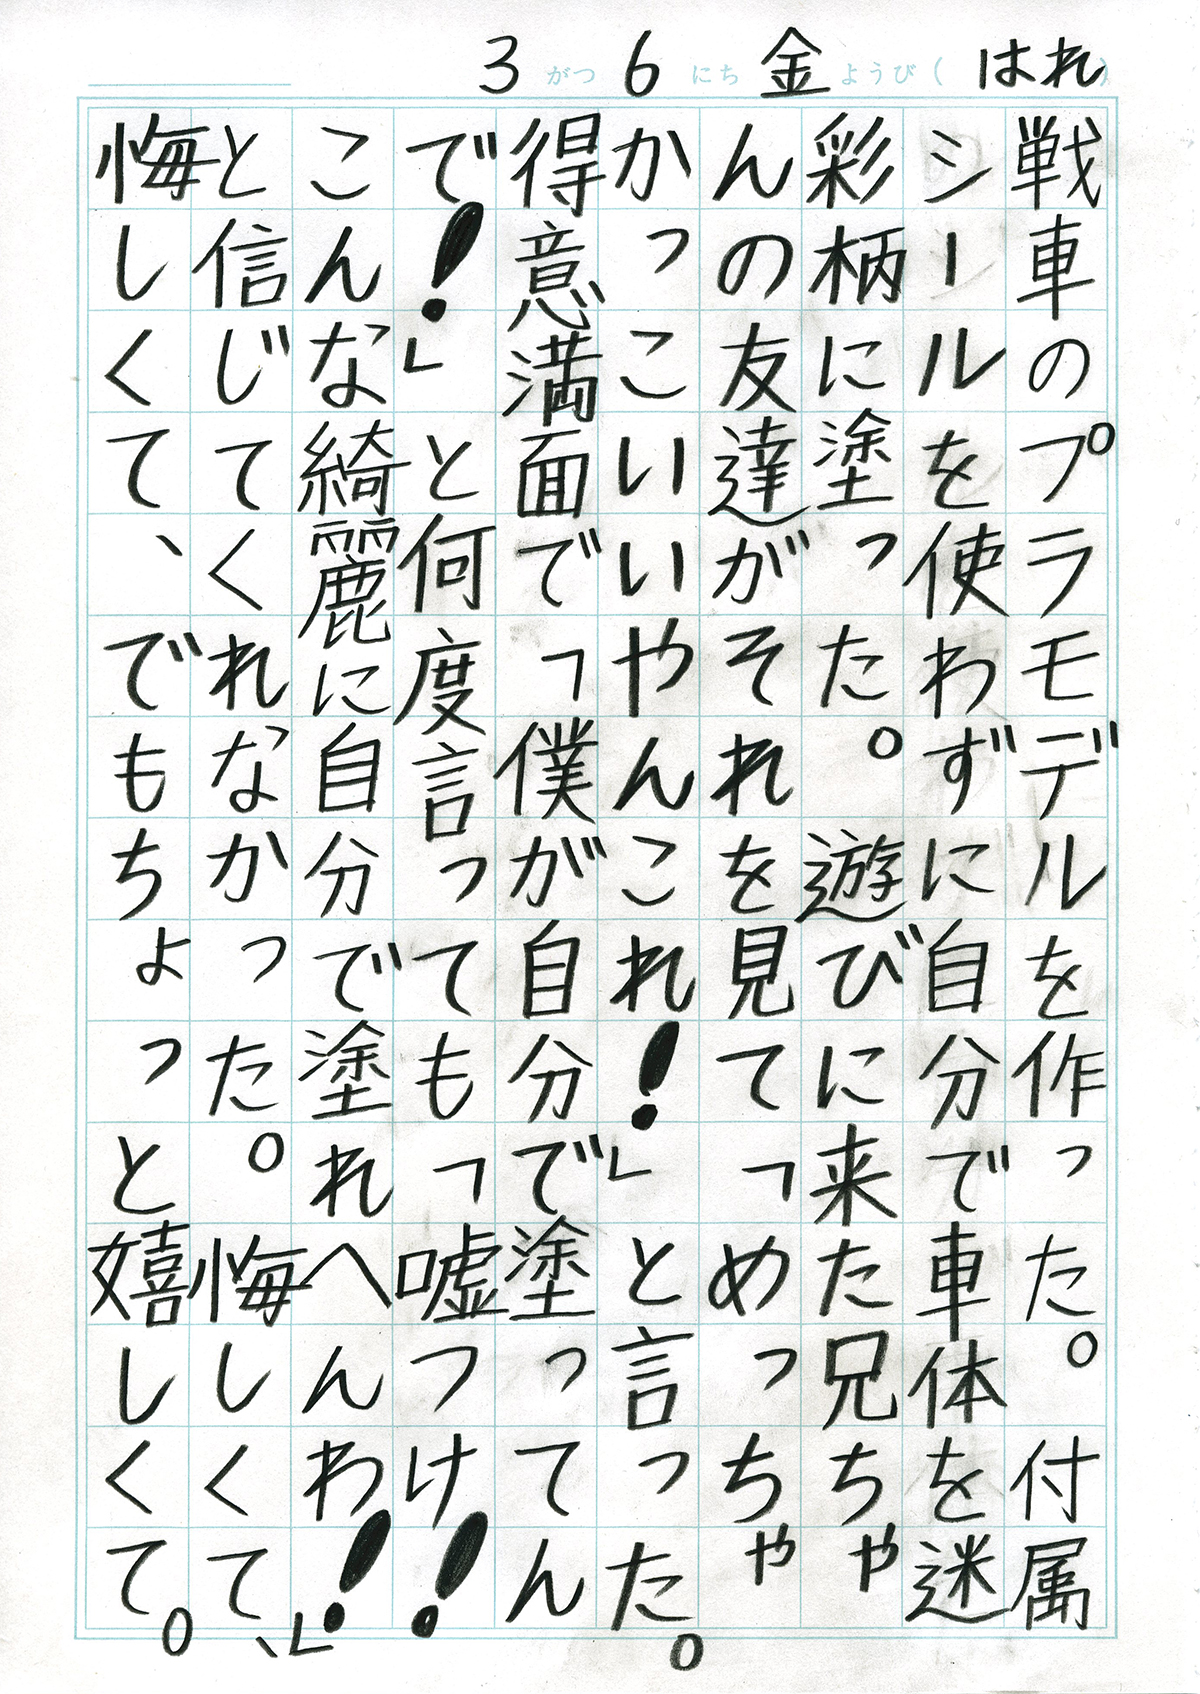 3がつ6にち金ようび(はれ)
戦車のプラモデルを作った。付属
シールを使わずに自分で車体を迷
彩柄に塗った。遊びに来た兄ちゃ
んの友達がそれを見て「めっちゃ
かっこいいやんこれ!」と言った。
得意満面で「僕が自分で塗ってん
で!」と何度言っても「嘘つけ!
こんな綺麗に自分で塗れへんわ!」
と信じてくれなかった。悔しくて、
悔しくて、でもちょっと嬉しくて。